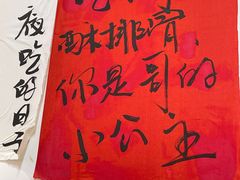 夜吃的日子
酥排骨,
你是哥的
小公主